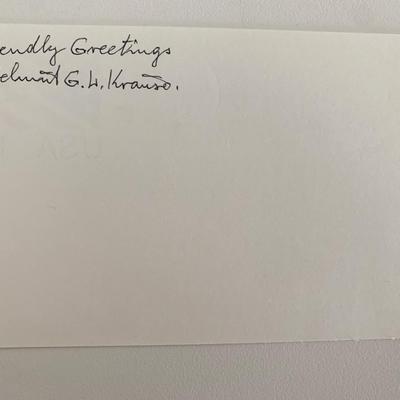 endly Greetings
elmut G. W. Krause.
USA